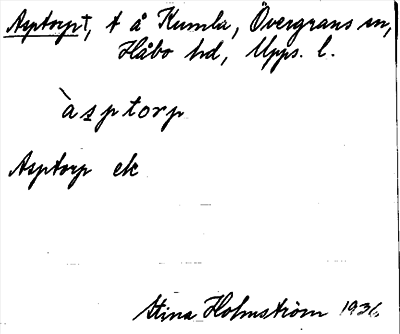 Asptorpt, t å Kumla, Övergrans sn,
Håbo hd, Upps. l.
àsptorp
Asptorp ek
Stina Holmström 1936